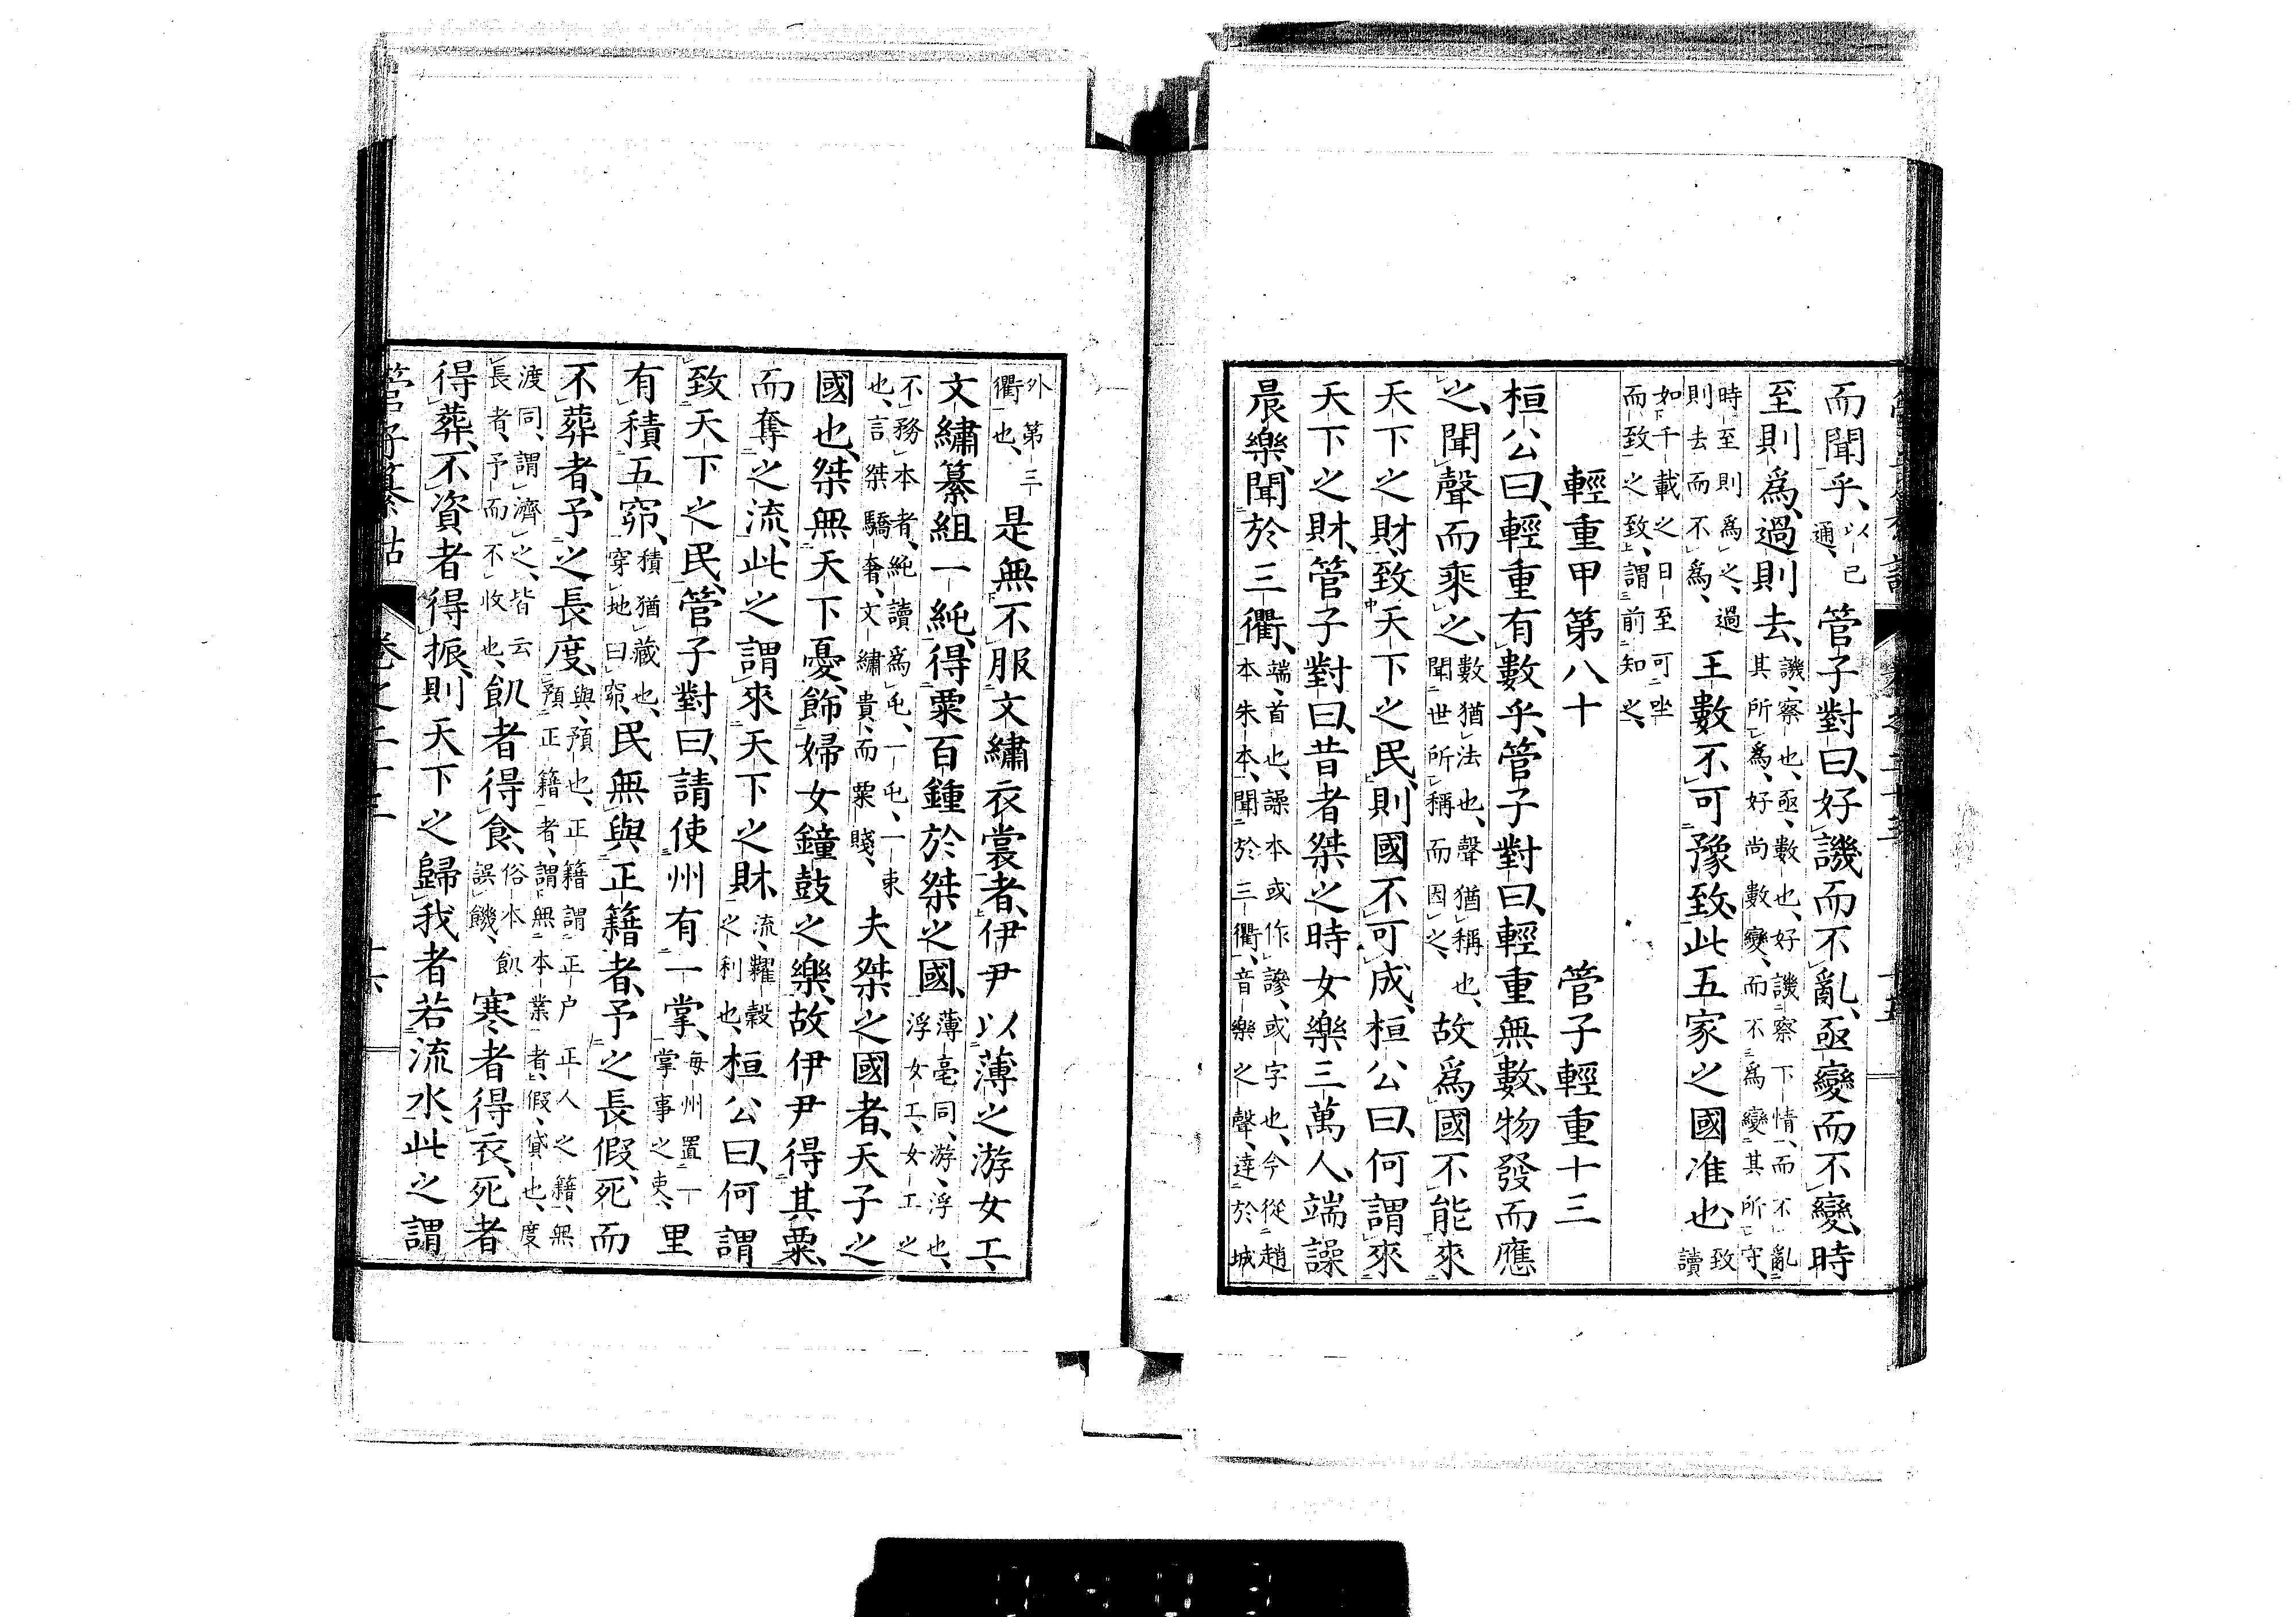 而聞乎、以已通、管子對曰、好譏而不亂、亟變而不變、時
至則爲、過則去、譏、察也、亟、數也、好譏察下情、而不亂其所爲、好尚數變、而不爲變其所守、
時至則爲之、過則去而不爲、王數不可豫致、此五家之國准也、致讀
如千載之日至可坐而致之致、謂前知之、
輕重甲第八十 管子輕重十三
桓公曰、輕重有數乎、管子對曰、輕重無數、物發而應
之、聞聲而乘之、數猶法也、聲猶稱也、聞世所稱而因之、故爲國不能來
天下之財、致天下之民、則國不可成、桓公曰、何謂來
天下之財、管子對曰、昔者桀之時女樂三萬人、端譟
晨樂、聞於三衢、端、首也、譟本或作謲、或字也、今從趙本朱本、聞於三衢、音樂之聲、達於城
外第三衢也、是無不服文繡衣裳者、伊尹以薄之游女工、
文繡纂組一純、得粟百鍾於桀之國、薄亳同、游、浮也、浮女工、女工之
不務本者、純讀爲屯、一屯、一束也、言桀驕奢、文繡貴、而粟賤、夫桀之國者、天子之
國也、桀無天下憂、飾婦女鐘鼓之樂、故伊尹得其粟、
而奪之流、此之謂來天下之財、流、糴穀之利也、桓公曰、何謂
致天下之民、管子對曰、請使州有一掌、每州置一掌事之吏、里
有積五窌、積猶藏也、穿地曰窌、民無與正籍者、予之長假、死而
不葬者、予之長度、與、預也、正籍謂正戶正人之籍、無預正籍者、謂無本業者、假、貸也、度
渡同、謂濟之、皆云長者、予而不收也、飢者得食、俗本飢誤饑、寒者得衣、死者
得葬、不資者得振、則天下之歸我者若流水、此之謂
管子纂詁 卷之二十三 十六